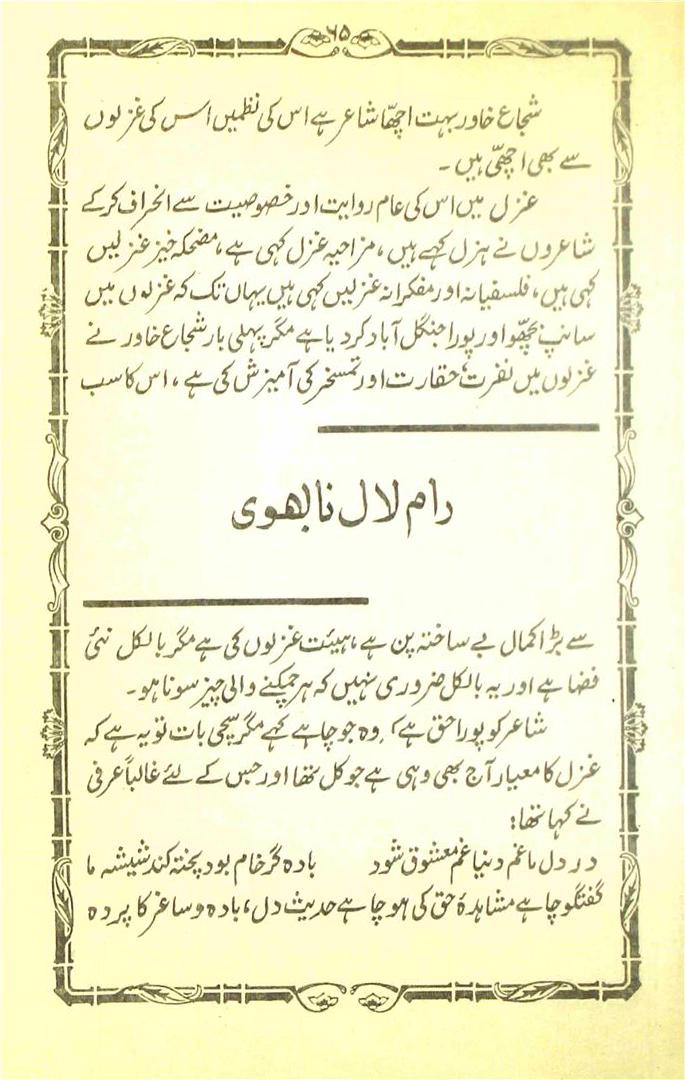 ۶۵
شجاع خاور بہت اچھّا شاعر ہے اس کی نظمیں اس کی غزلوں
سے بھی اچھّی ہیں۔
غزل میں اس کی عام روایت اور خصوصیت سے انحراف کرکے
شاعروں نے ہزل کہے ہیں، مزاحیہ غزل کہی ہے، مضحکہ خیز غزلیں
کہی ہیں، فلسفیانہ اور مفکرانہ غزلیں کہی ہیں یہاں تک کہ غزلوں میں
سانپ بچھّو اور پورا جنگل آباد کردیا ہے مگر پہلی بار شجاع خاور نے
غزلوں میں نفرت، حقارت اور تمسخر کی آمیزش کی ہے، اس کا سب
رام لال نابھوی
سے بڑا کمال بے ساختہ پن ہے، ہیئت غزلوں کی ہے مگر بالکل نئی
فضا ہے اور یہ بالکل ضروری نہیں کہ ہر چمکنے والی چیز سونا ہو۔
شاعر کو پورا حق ہے کہ وہ جو چاہے کہے مگر سچی بات تو یہ ہے کہ
غزل کا معیار آج بھی وہی ہے جو کل تھا اور جس کے لئے غالباً عرفی
نے کہا تھا:
در دل ما غم دنیا غم معشوق شود بادہ گر خام بود پختہ کند شیشہ ما
گفتگو چاہے مشاہدۂ حق کی ہو چاہے حدیث دل، بادہ و ساغر کا پردہ